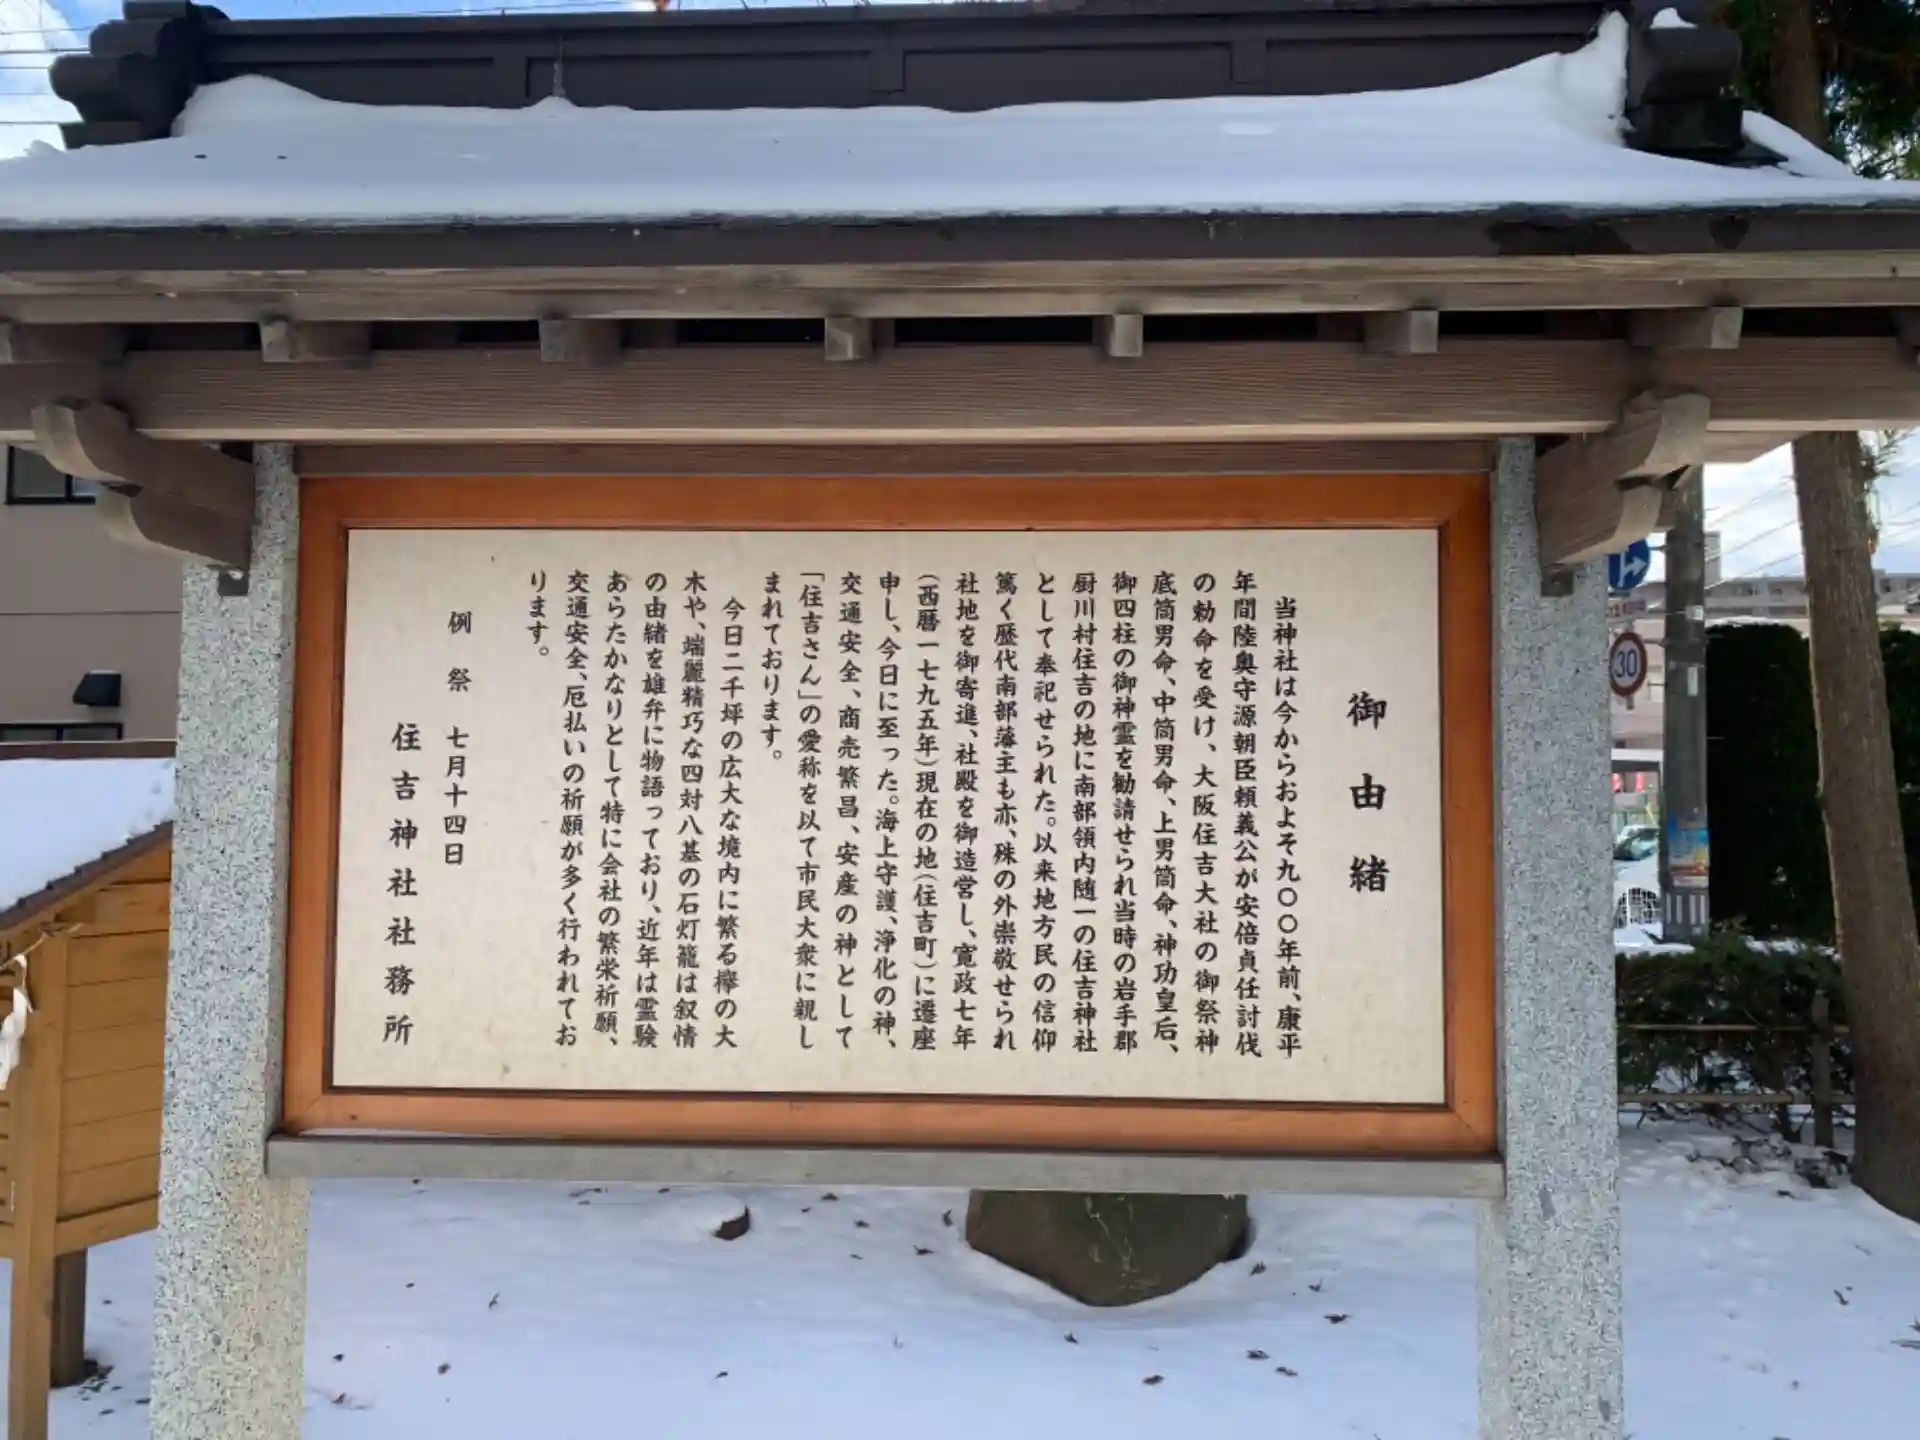 御由緒
当神社は今からおよそ九〇〇年前、康平
年間陸奥守源朝臣頼義公が安倍貞任討伐
の勅命を受け、大阪住吉大社の御祭神
底筒男命、中筒男命、上男筒命、神功皇后、
御四柱の御神霊を勧請せられ当時の岩手郡
厨川村住吉の地に南部領内随一の住吉神社
として奉祀せられた。以来地方民の信仰
篤く歴代南部藩主も亦、殊の外崇敬せられ
社地を御寄進、社殿を御造営し、寛政七年
（西暦一七九五年）現在の地（住吉町）に遷座
申し、今日に至った。海上守護、浄化の神、
交通安全、商売繁昌、安産の神として
「住吉さん」の愛称を以て市民大衆に親し
まれております。
今日二千坪の広大な境内に繁る欅の大
木や、端麗精巧な四対八基の石灯籠は叙情
の由緒を雄弁に物語っており、近年は霊験
あらたかなりとして特に会社の繁栄祈願、
交通安全、厄払いの祈願が多く行われてお
ります。
例祭 七月十四日
住吉神社社務所
30